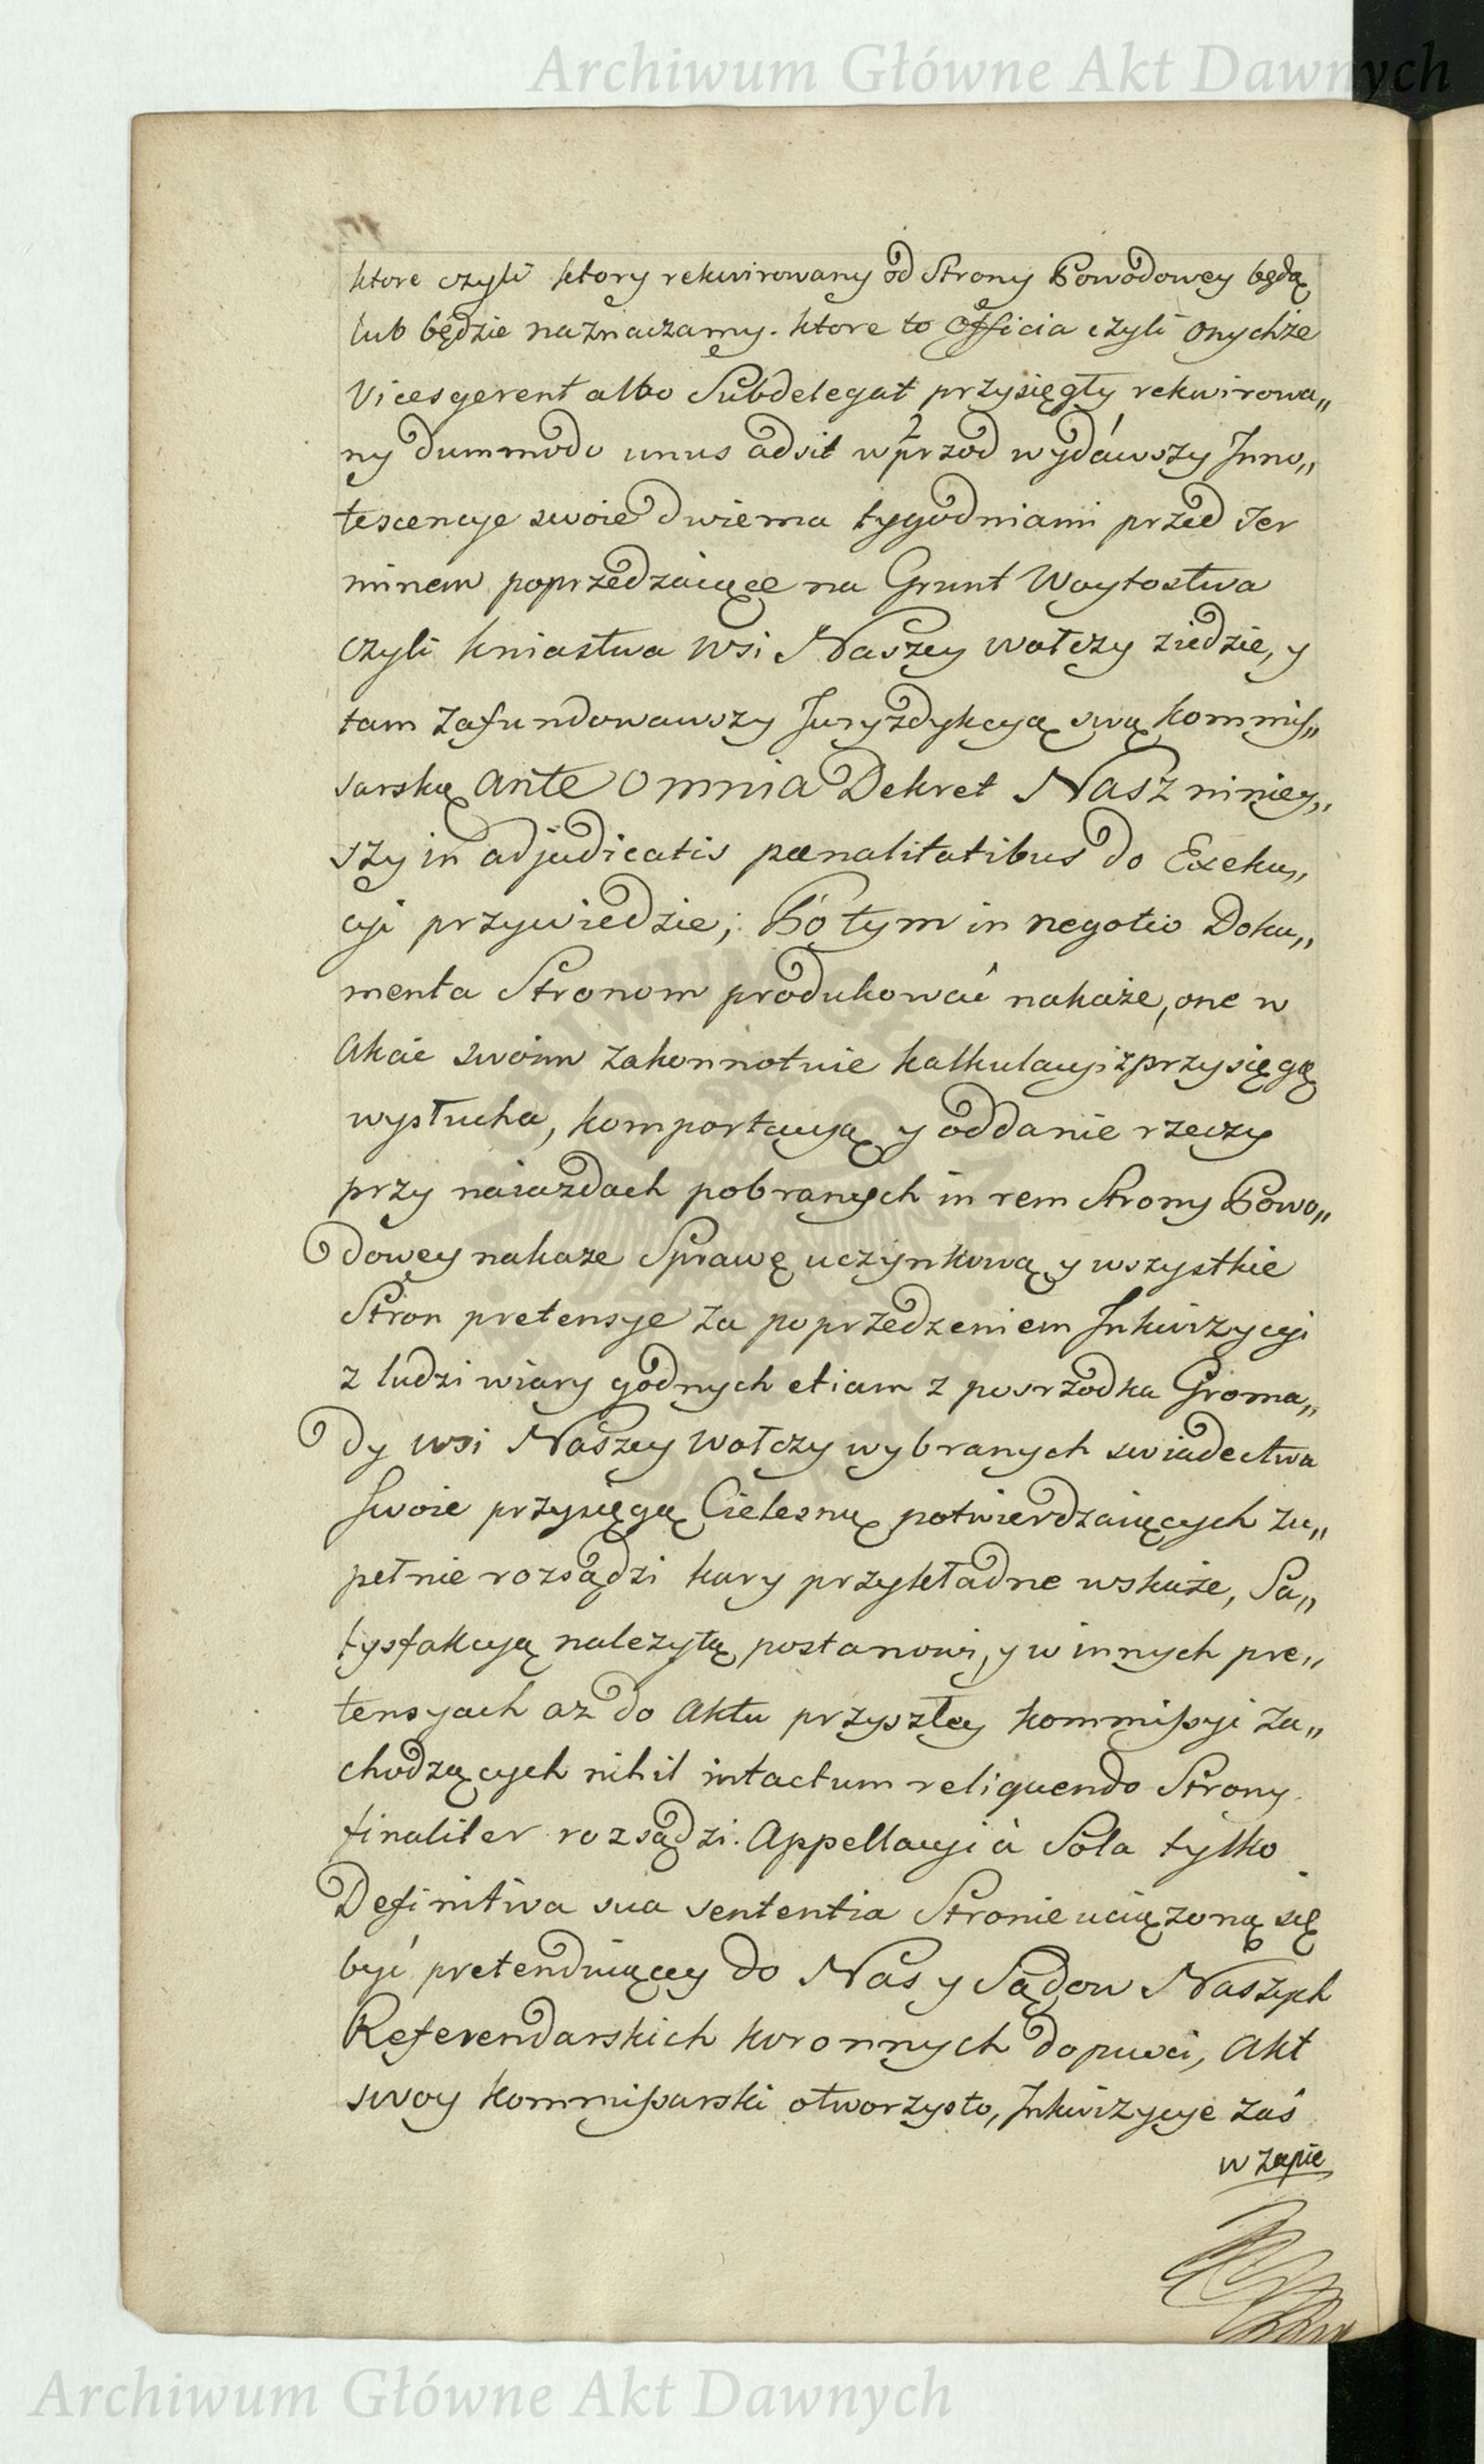 Archiwum Główne Akt Dawnych
ktore czyli ktory rekwirowany od Strony Powodowey będą
lub będzie naznaczamy. ktore to Officia czyli onychże
Vicesgerent albo Subdelegat przysięgły rekwirowa„
ny dummodo unus adsit wprzod wydáwszy Inno„
tescencye swoie dwiema tygodniami przed Ter
minem poprzedzaiącę na Grunt Woytostwa
czyli kniastwa wsi Naszey wołczy ziedzie, y
tam zafundowawszy Juryzdykcyą swą kommis„
sarską ante omnia Dekret Nasz niniey„
szy in adjudicatis pœnalitatibus do Exeku„
cyi przywiedzie; Po tym in negotio Doku„
menta Stronom produkować nakaże, one w
Akcie swoim zakonnotuie kalkulacyi z przysięgą
wysłucha, komportacyą y oddanie rzeczy
przy naiazdach pobranych in rem Strony Powo„
dowey nakaze Sprawę uczynkową y wszystkie
Stron pretensye za poprzedzeniem Inkwizycyi
z ludzi wiary godnych etiam z posrzodka Groma„
dy wsi Naszey wołczy wybranych swiadectwa
swoie przysięgą Cielesną potwierdzaiących zu„
pełnie rozsądzi kary przykładne wskaże, Sa„
tysfakcyą należytą postanowi, y w innych pre„
tensyach aż do Aktu przyszłey kommissyi za„
chodzących nihil intactum reliquendo Strony
finaliter rozsądzi. Appellacyi à Sola tylko
Definitiva sua sententia Stronie uciążoną się
być pretenduiącey do Nas y Sądow Naszych
Referendarskich koronnych dopuści, Akt
swoy kommissarski otworzysto, Inkwizycye zaś
w zapie
Archiwum Główne Akt Dawnych